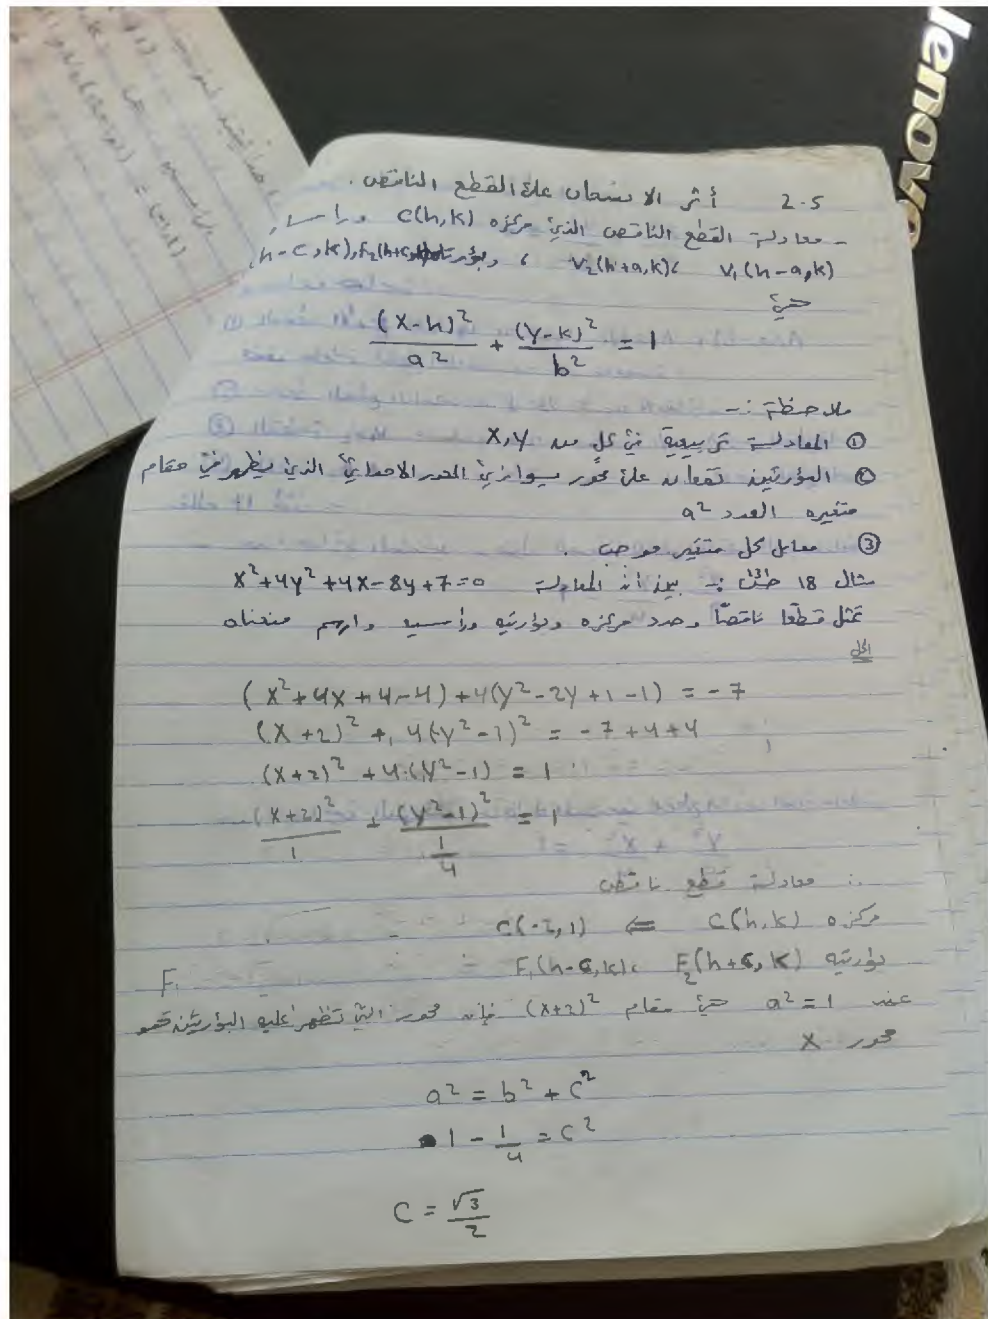 lenovo
2.5 أثر الانسحاب على القطع الناقص .
- معادلة القطع الناقص الذي مركزه C(h,k) وراسـ
V₁(h-a,k) ، V₂(h+a,k) ، وبؤرتا h-c,k),F₂(h+c
هي
(X-h)²/a² + (Y-k)²/b² = 1
ملاحظة :-
① المعادلة تربيعية في كل من X,Y
② البؤرتين تقعان على محور يوازي المحور الاحداثي الذي يظهر في مقام
متغيره العدد a²
③ معامل كل متغير موجب .
مثال 18 :- بين ان المعادلة X²+4y²+4X-8y+7=0
تمثل قطعًا ناقصًا وحدد مركزه وبؤرتيه وراسيه وارسم منحناه
الحل
(X²+4X+4-4)+4(y²-2y+1-1) = -7
(X+2)² + 4(y²-1)² = -7+4+4
(X+2)² + 4(y²-1) = 1
(X+2)²/1 + (y²-1)²/(1/4) = 1
∴ معادلة قطع ناقص
مركزه C(h,k) ⇐ C(-2,1)
بؤرتيه F₁(h-c,k)، F₂(h+c,k) F₁
عند a²=1 هي مقام (x+2)² فإن محور التي تظهر عليه البؤرتين هو
محور X
a² = b² + c²
1 - 1/4 = c²
C = √3/2